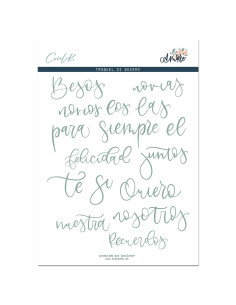 Besos novias
novios los las
para siempre el
felicidad juntos
te Si Quiero
nuestra nosotros
Recuerdos